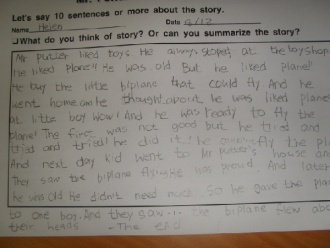 Let's say 10 sentences or more about the story.
Name Helen Date 9/12
What do you think of story? Or can you summarize the story?
Mr putter liked toys He always stoped at the toy shop
He liked plane!! He was old But he liked plane!!
He buy the little biplane that could fly And he
went home he thought about he was liked plane
at little boy Wow! And he was ready to fly the
plane! The first was not good but he tried and
tried and tried! he did it! he fly the pl
And next day kid went to Mr putter's house and
They saw the biplane fly He was proud. And later
he was old He didn't need So he gave the plane
to one boy. And they saw... the biplane flew abo
their heads - The end